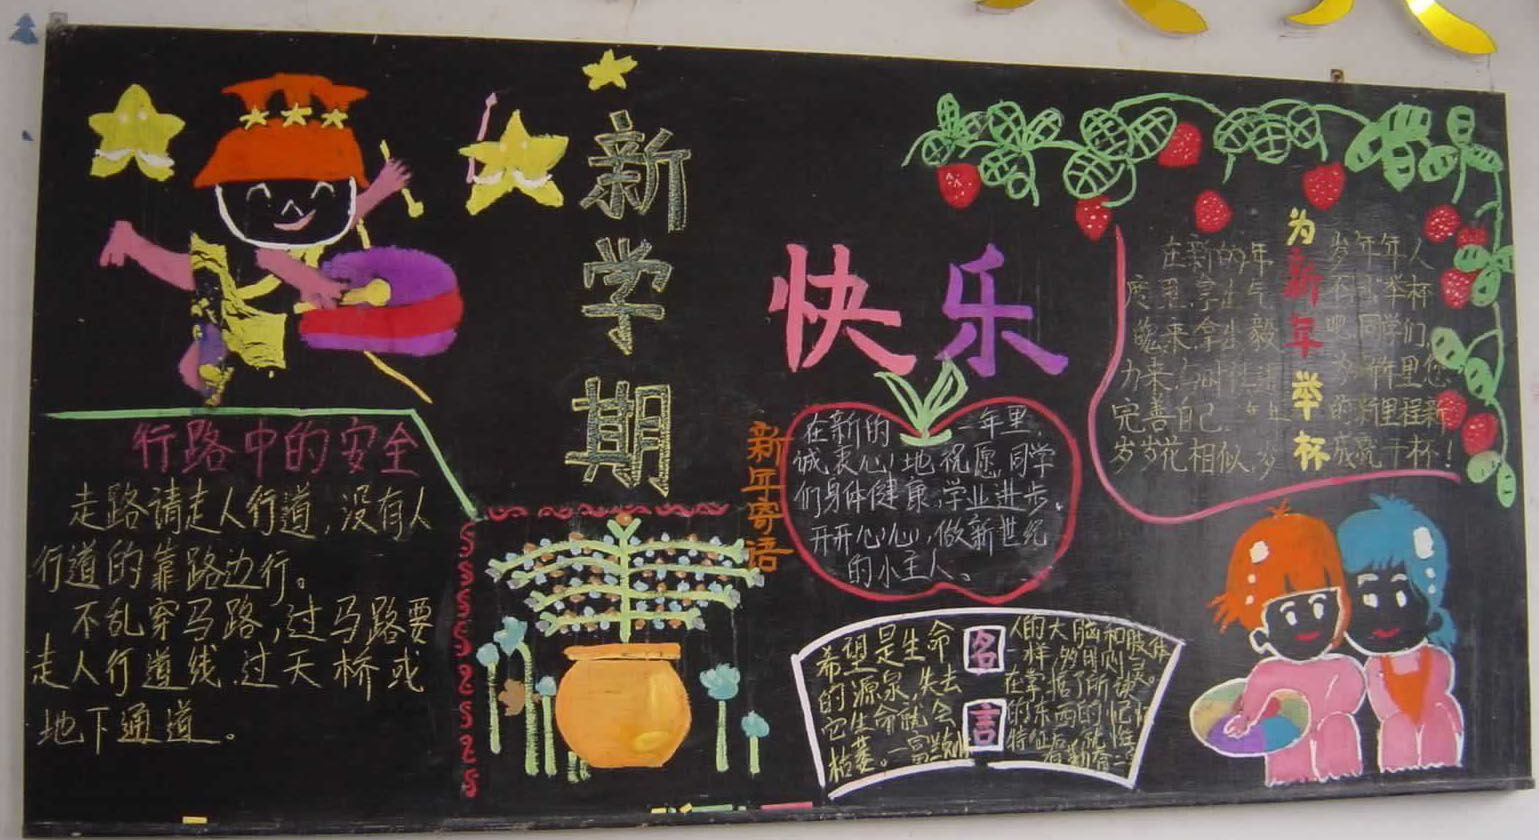 新学期
快乐
行路中的安全
走路请走人行道,没有人
行道的靠路边行。
不乱穿马路,过马路要
走人行道线.过天桥或
地下通道。
新年寄语
在新的一年里
诚衷心地祝愿同学
们身体健康.学业进步.
开开心心,做新世纪
的小主人。
名言
希望是生命
的源泉,失去
它生命就会
枯萎。一富兰
人的大脑和肢体
一样
为新年举杯
在新的年
度里.拿出
来.拿出毅
力来
完善自己.
岁岁花相似.岁
岁年年人
不
举杯
吧.同学们,
的新里程新
干杯!